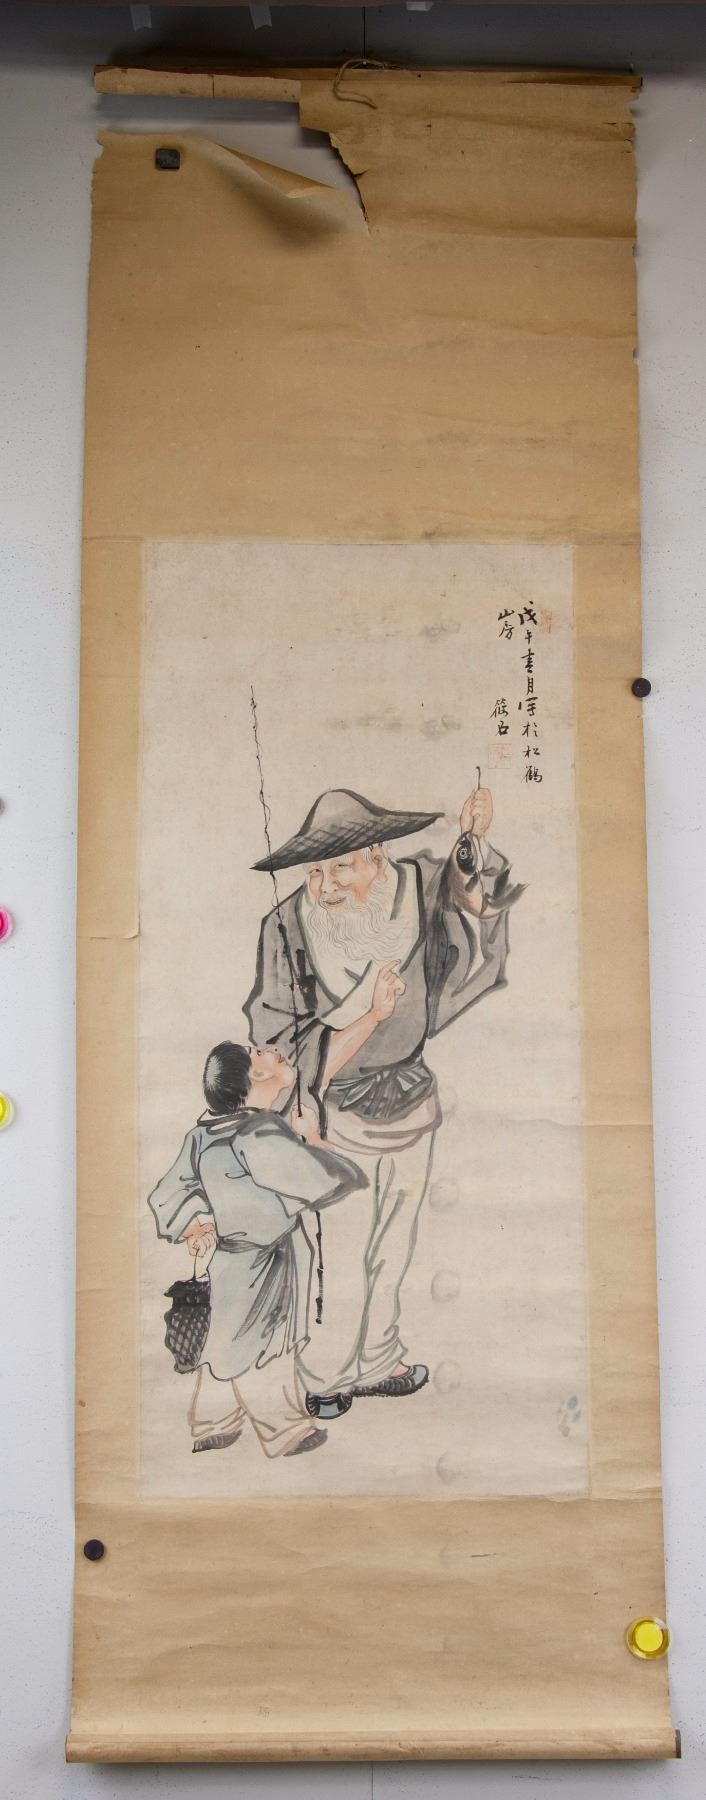 戊午春月写於松鶴
山房 筱石